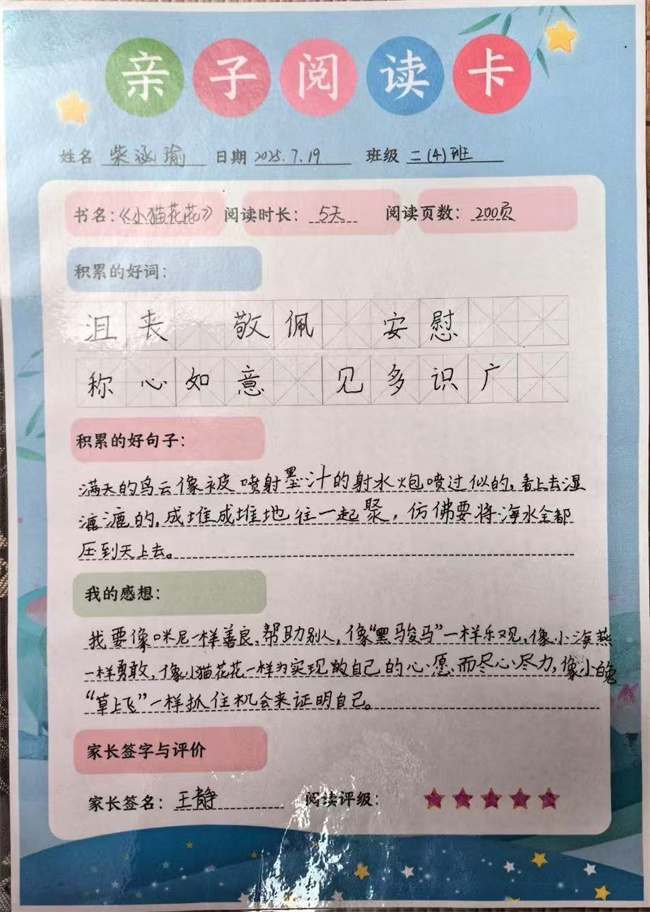 亲子阅读卡
姓名 柴涵瑜 日期 2025.7.19 班级 二(4)班
书名:《小猫花花》 阅读时长: 5天 阅读页数: 200页
积累的好词:
沮丧 敬佩 安慰
称心如意 见多识广
积累的好句子:
满天的乌云像被喷射墨汁的射水炮喷过似的,看上去湿
漉漉的,成堆成堆地往一起聚,仿佛要将海水全都
压到天上去。
我的感想:
我要像咪尼一样善良,帮助别人,像“黑骏马”一样乐观,像小海燕
一样勇敢,像小猫花花一样为实现自己的心愿而尽心尽力,像小
“草上飞”一样抓住机会来证明自己。
家长签字与评价
家长签名: 王静 阅读评级: